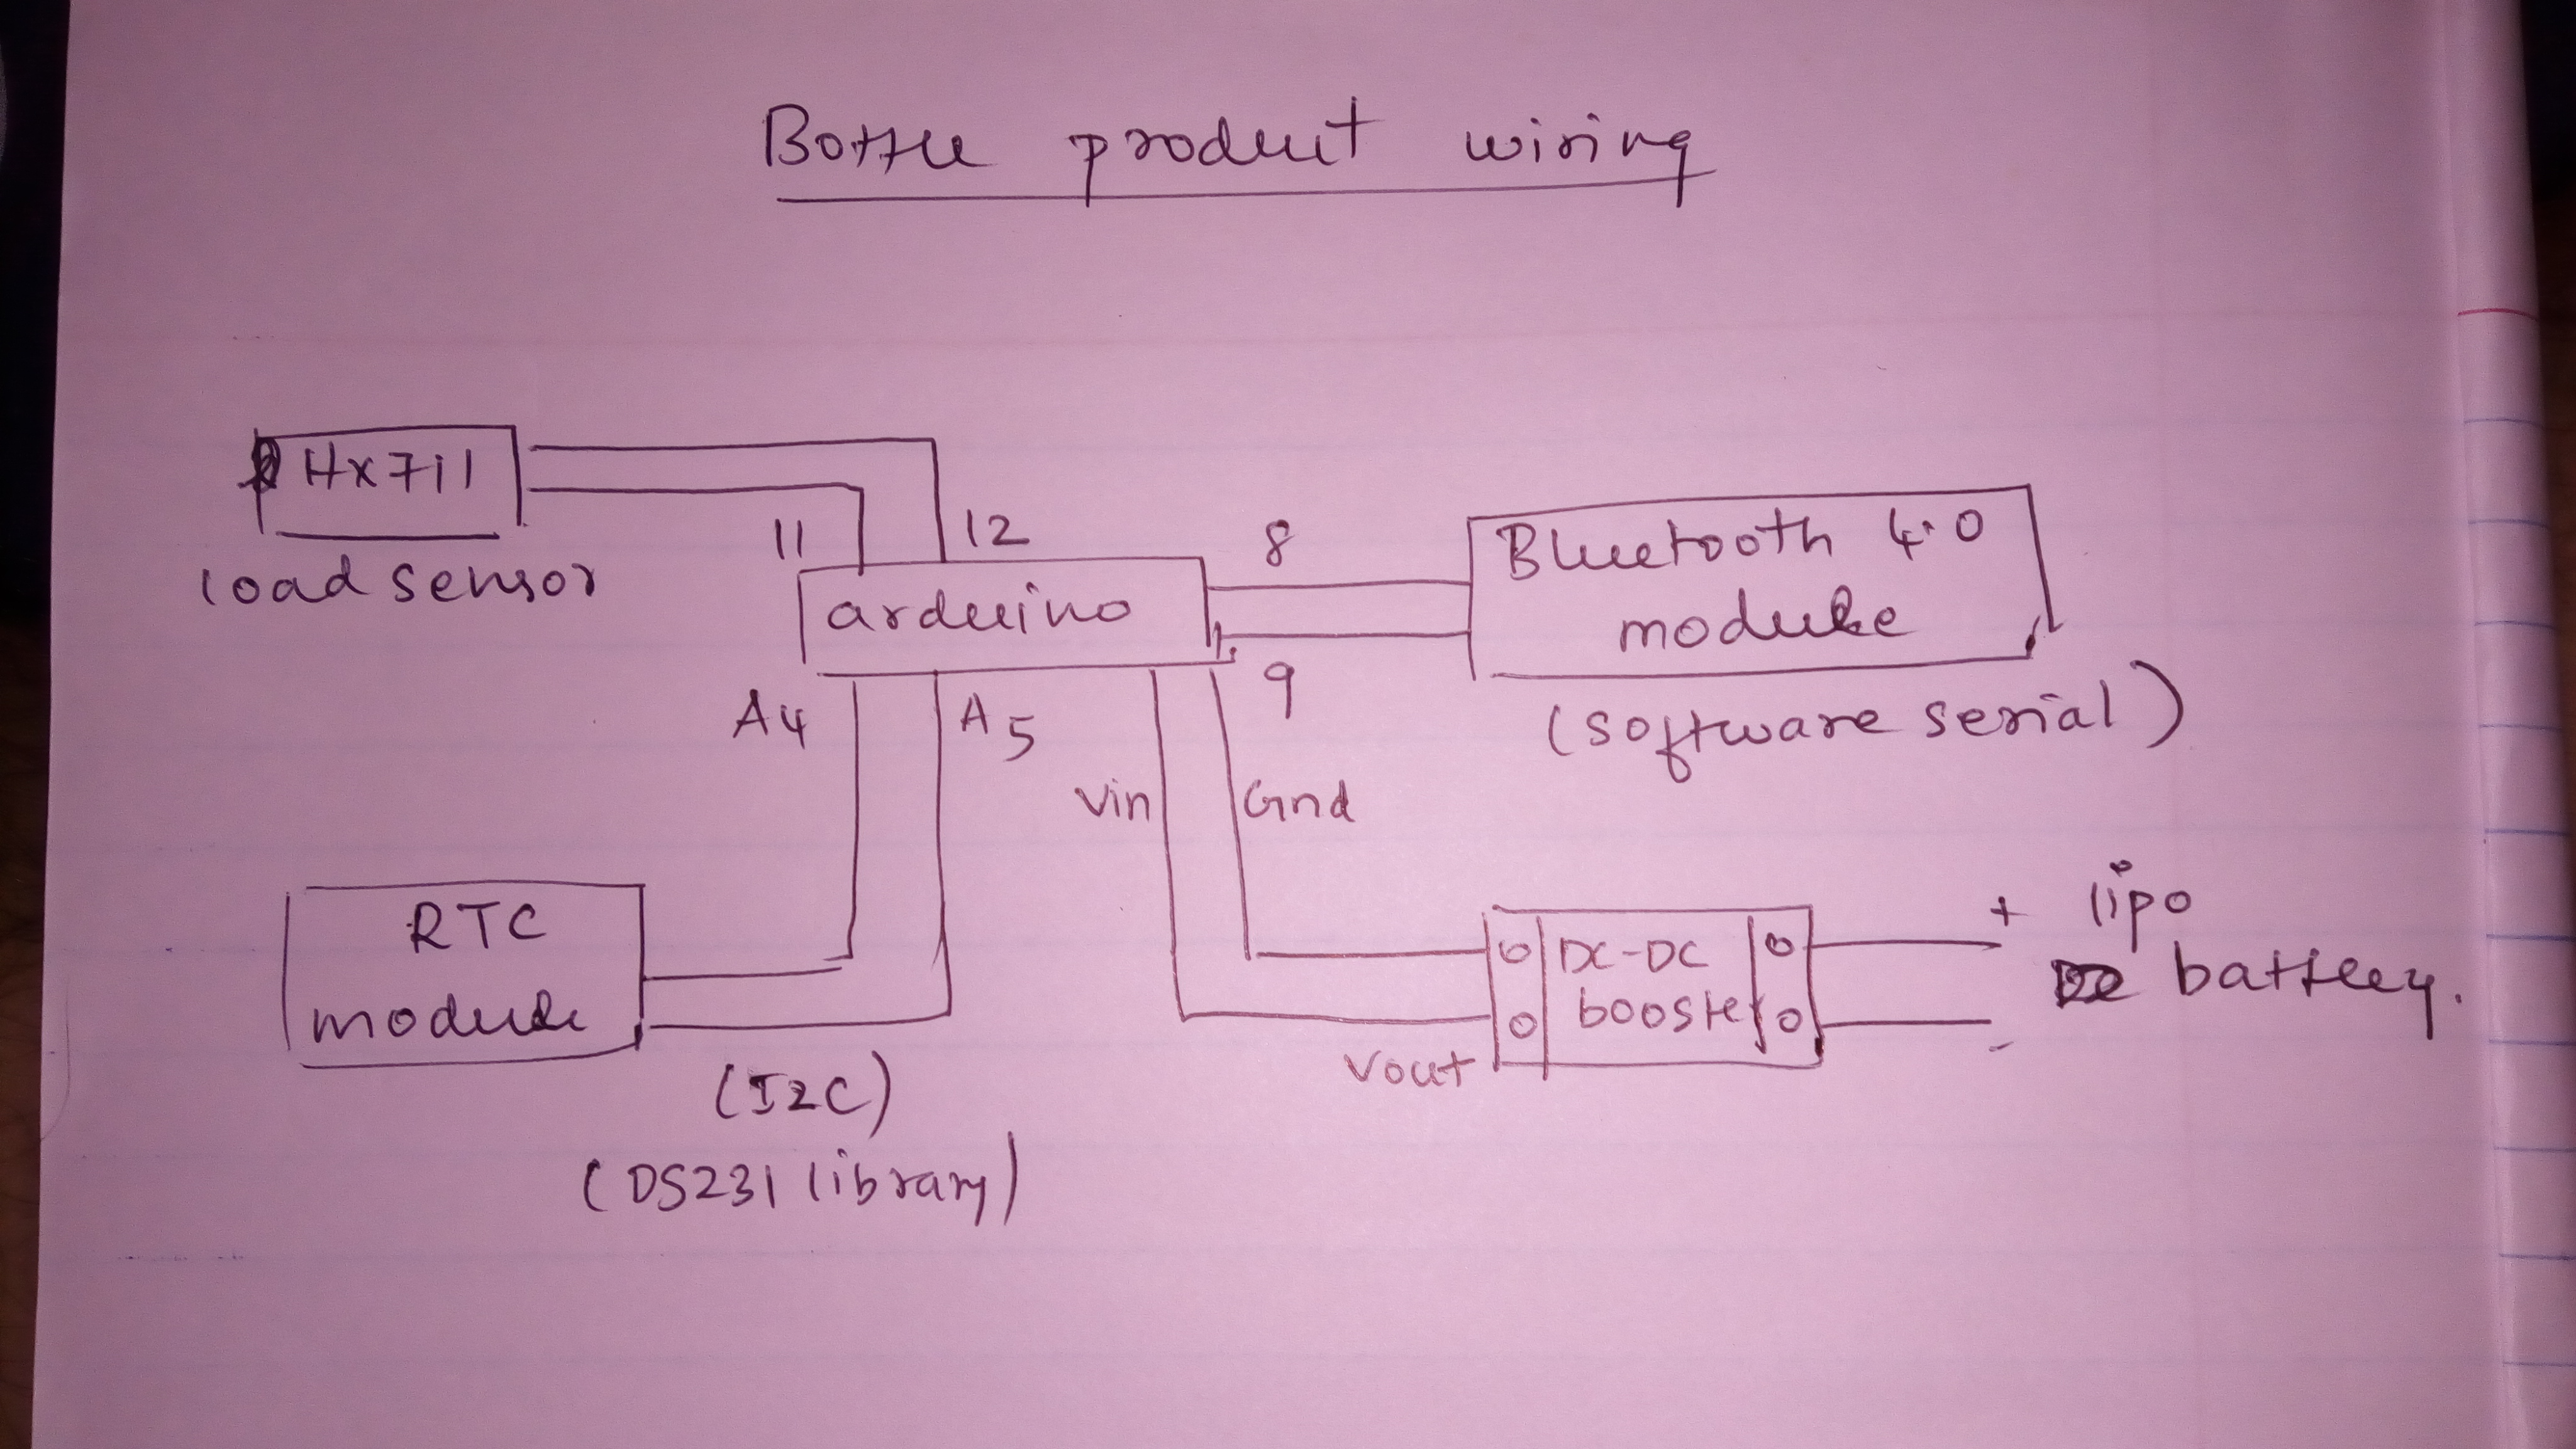 Bottle product wiring
HX711
load sensor
11
12
8
arduino
9
Bluetooth 4.0
module
(software serial)
A4
A5
Vin
Gnd
RTC
module
(I2C)
(DS231 library)
DC-DC
booster
Vout
+
-
lipo
battery.